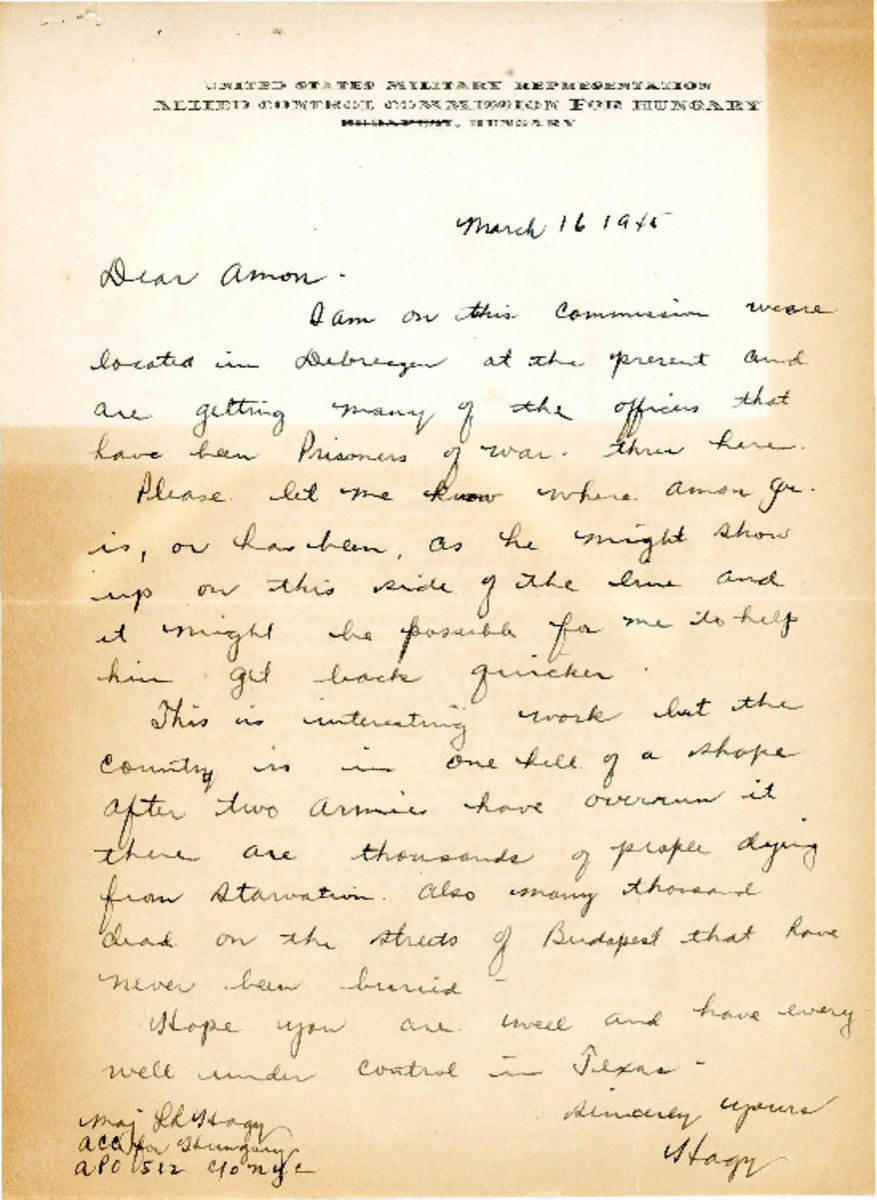 UNITED STATES MILITARY REPRESENTATION
ALLIED CONTROL COMMISSION FOR HUNGARY
BUDAPEST, HUNGARY
March 16 1945
Dear Amon -
I am on this commission we are
located in Debreczen at the present and
are getting many of the officers that
have been Prisoners of war. thru here.
Please let me know where Amon Jr.
is, or has been, as he might show
up on this side of the line and
it might be possible for me to help
him get back quicker.
This is interesting work but the
country is in one hell of a shape
after two armies have overrun it
there are thousands of people dying
from starvation. Also many thousand
dead on the streets of Budapest that have
never been buried -
Hope you are well and have every
well under control in Texas -
Sincerely yours
Hagy
Maj Hagy
ACC for Hungary
APO 512 c/o NYC